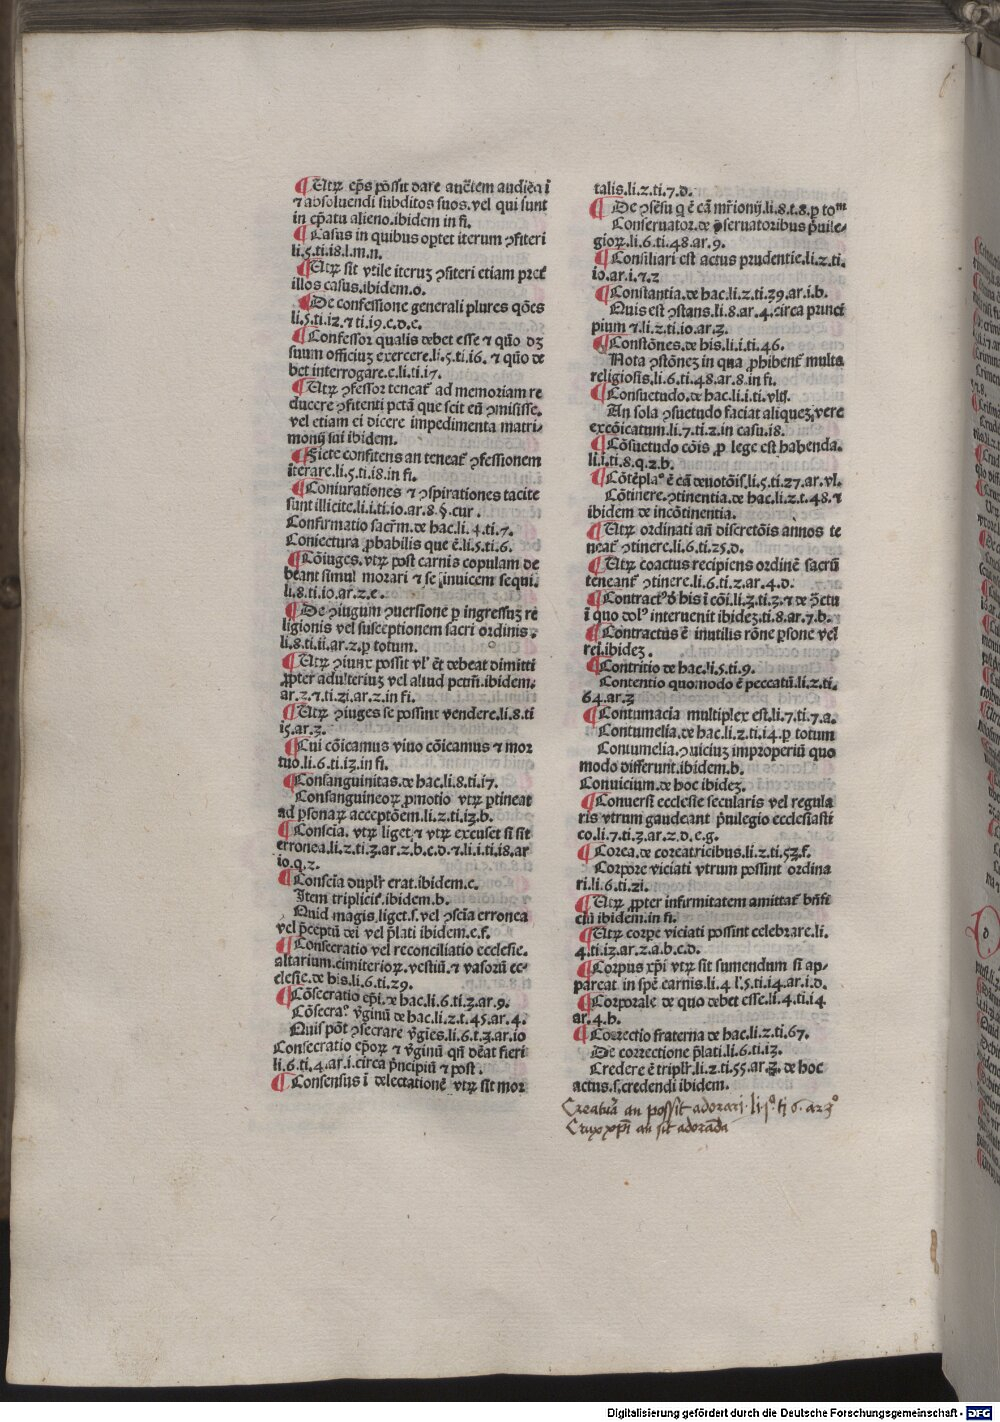 ¶Utrꝝ ep̄s possit dare auctem audiēdi
⁊ absoluendi subditos suos.vel qui sunt
in ep̄atu alieno.ibidem in fi.
¶Casus in quibus oꝑtet iterum ꝯfiteri
li.5.ti.18.l.m.n.
¶Utrꝝ sit vtile iteruꝫ ꝯfiteri etiam preť
illos casus.ibidem.o.
¶De confessione generali plures q̄ões
li.5.ti.12.⁊ ti.19.c.d.e.
¶Confessor qualis debet esse ⁊ quō dꝫ
suum officiuꝫ exercere.li.5.ti.16. ⁊ quō de
bet interrogare.e.li.ti.17.
¶Utrꝝ ꝯfessor teneat̉ ad memoriam re
ducere ꝯfitenti pctā que scit eū ꝯmisisse.
vel etiam ei dicere impedimenta matri-
monij sui ibidem.
¶Ficte confitens an teneat̉ ꝯfessionem
iterare.li.5.ti.18.in fi.
¶Coniurationes ⁊ ꝯspirationes tacite
sunt illicite.li.1.ti.10.ar.8.q̄.cur.
Confirmatio sacr̄m.de hac.li.4.ti.7.
Coniectura ꝓbabilis que ē.li.5.ti.6.
¶Cōiuges.vtrꝝ post carnis copulam de
beant simul morari ⁊ se inuicem sequi.
li.8.ti.10.ar.2.e.
¶De ꝯiugum ꝯuersione ꝑ ingressuꝫ re
ligionis vel susceptionem sacri ordinis.
li.8.ti.11.ar.2.ꝑ totum.
¶Utrꝝ ꝯiunx possit vl̓ ēt debeat dimitti
ꝓpter adulteriuꝫ vel aliud pctm̄.ibidem.
ar.2.⁊.ti.21.ar.2.in fi.
¶Utrꝝ ꝯiuges se possint vendere.li.8.ti
15.ar.3.
¶Cui cōicamus viuo cōicamus ⁊ mor
tuo.li.6.ti.13.in fi.
¶Consanguinitas.de hac.li.8.ti.17.
Consanguineoꝝ ꝓmotio vtrꝝ ꝑtineat
ad ꝑsonaꝝ acceptōem.li.2.ti.13.b.
¶Conscīa. vtrꝝ liget.⁊ vtrꝝ excuset si sit
erronea.li.2.ti.3.ar.2.b.c.d.⁊ li.1.ti.18.ar
10.q.2.
¶Conscīa duplr̄ erat.ibidem.c.
Item triplicit̉.ibidem.b.
Quid magis liget.s.vel ꝯscīa erronea
vel p̄ceptū dei vel p̄lati ibidem.e.f.
¶Consecratio vel reconciliatio ecclesie.
altarium.cimiterioꝝ.vestiū.⁊ vasorū ec-
clesie.de his.li.6.ti.29.
¶Cōsecratio ep̄i.de hac.li.6.ti.3.ar.9.
Cōsecra⁰ v̄ginū de hac.li.2.t.45.ar.4.
Quis pōt ꝯsecrare v̄gīes.li.6.t.3.ar.10
Consecratio ep̄oꝝ ⁊ v̄ginū qn̄ dēat fieri
li.6.ti.4.ar.1.circa p̄ncipiū ⁊ post.
¶Consensus ī delectationē vtrꝝ sit mor
talis.li.2.ti.7.d.
¶De ꝯsēsu q̇ ē cā mr̄ionij.li.8.t.8.ꝑ toᵐ
Conseruator.de ꝯseruatoribus p̄uile-
gioꝝ.li.6.ti.48.ar.9.
¶Consiliari est actus prudentie.li.2.ti.
10.ar.1.⁊.2
¶Constantia.de hac.li.2.ti.39.ar.1.b.
Quis est ꝯstans.li.8.ar.4.circa princi
pium ⁊.li.2.ti.10.ar.3.
¶Constōnes.de his.li.1.ti.46.
Nota ꝯstōneꝫ in qua ꝓhibent̉ multa
religiosis.li.6.ti.48.ar.8.in fi.
¶Consuetudo.de hac.li.1.ti.vlt̉.
An sola ꝯsuetudo faciat aliqueꝫ vere
excōicatum.li.7.ti.2.in casu.18.
¶Cōsuetudo cōis ꝓ lege est habenda.
li.1.ti.8.q.2.b.
¶Cōtēpla⁰ ē cā deuotōis̉.li.5.ti.27.ar.vl.
Cōtinere.ꝯtinentia.de hac.li.2.t.48.⁊
ibidem de incōtinentia.
¶Utrꝝ ordinati an̄ discretōis annos te
neat̉ ꝯtinere.li.6.ti.25.d.
¶Utrꝝ coactus recipiens ordinē sacrū
teneant̉ ꝯtinere.li.6.ti.2.ar.4.d.
¶Contract⁹.d̓ his ī cōi.li.3.ti.3.⁊ de ꝯ̄ctu
ī quo dol⁹ interuenit ibideꝫ.ti.8.ar.7.b.
¶Contractus ē inutilis rōne ꝑsone vel
rei.ibideꝫ.
¶Contritio de hac.li.5.ti.9.
Contentio quomodo ē peccatū.li.2.ti.
64.ar.3
¶Contumacia multiplex est.li.7.ti.7.a.
Contumelia.de hac.li.2.ti.14.ꝑ totum
Contumelia.ꝯuiciuꝫ improperiū quo
modo differunt.ibidem.b.
Conuicium.de hoc ibideꝫ.
¶Conuersi ecclesie secularis vel regula
ris vtrum gaudeant p̄uilegio ecclesiasti
co.li.7.ti.3.ar.2.d.e.g.
¶Corea.de coreatricibus.li.2.ti.53.f.
Corpore viciati vtrum possint ordina
ri.li.6.ti.21.
¶Utrꝝ ꝓpter infirmitatem amittat̉ bn̄fi
ciū ibidem.in fi.
¶Utrꝝ corꝑe viciati possint celebrare.li.
4.ti.13.ar.2.a.b.c.d.
¶Corpus xp̄i vtrꝝ sit sumendum si ap-
pareat in spē carnis.li.4 l̓.5.ti.14.ar.1.d.
¶Corporale de quo debet esse.li.4.ti.14
ar.4.b.
¶Correctio fraterna de hac.li.2.ti.67.
De correctione p̄lati.li.6.ti.13.
Credere ē triplr̄.li.2.ti.55.ar.3. de hoc
actus.s.credendi ibidem.
Creatura an possit adorari. li.3⁰. ti 6. ar 3⁰
Crux xp̄i an sit adoranda
Digitalisierung gefördert durch die Deutsche Forschungsgemeinschaft - DFG